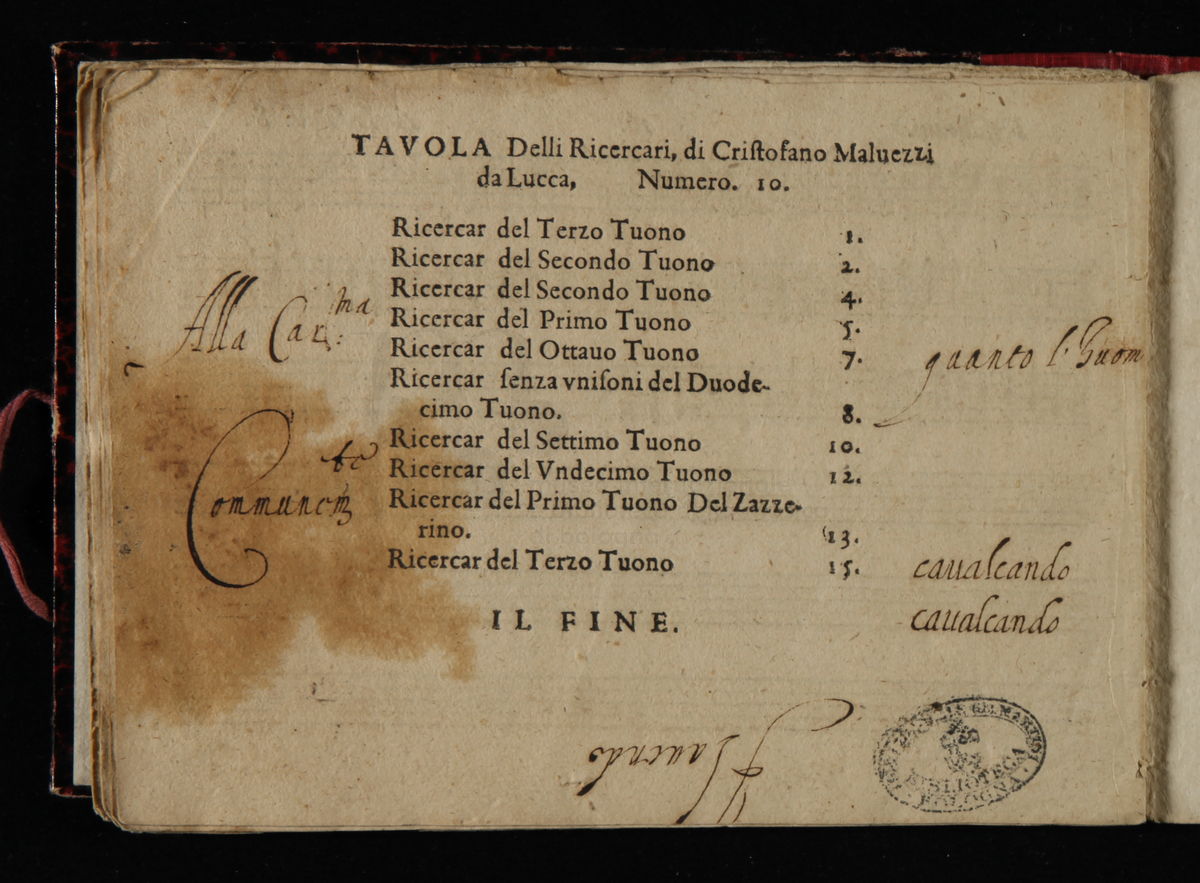 TAVOLA Delli Ricercari, di Criſtofano Maluezzi
da Lucca, Numero. 10.
Ricercar del Terzo Tuono 1.
Ricercar del Secondo Tuono 2.
Ricercar del Secondo Tuono 4.
Alla Car.ma
Ricercar del Primo Tuono 5.
Ricercar del Ottauo Tuono 7.
quanto l'huom
Ricercar ſenza vniſoni del Duode-
cimo Tuono. 8.
Ricercar del Settimo Tuono 10.
Ricercar del Vndecimo Tuono 12.
Ricercar del Primo Tuono Del Zazze-
rino. 13.
Ricercar del Terzo Tuono 15.
cavalcando
cavalcando
IL FINE.
BIBLIOTECA
BOLOGNA